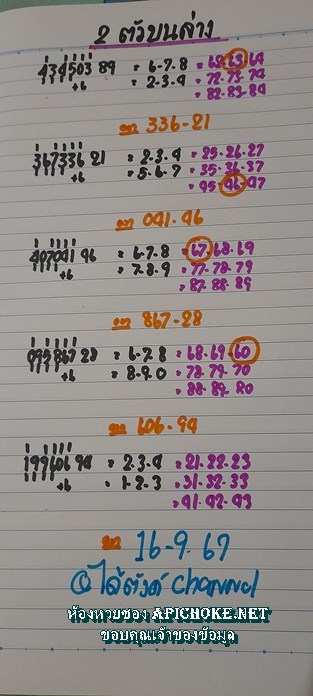 2 ตัวบนล่าง
434503 89 = 6-7-8 = 62-63-64
+6 = 2-3-4 = 72-73-74
= 82-83-84
336-21
367336 21 = 2-3-4 = 25-26-27
+6 = 5-6-7 = 35-36-37
= 45-46-47
041-46
407041 46 = 6-7-8 = 67-68-69
+6 = 7-8-9 = 77-78-79
= 87-88-89
867-28
095867 28 = 6-7-8 = 68-69-60
+6 = 8-9-0 = 78-79-70
= 88-89-80
606-94
199606 94 = 2-3-4 = 21-22-23
+6 = 1-2-3 = 31-32-33
= 41-42-43
16-9-67
ได้ตังค์ channel
ห้องหวยซอง APICHOKE.NET
ขอบคุณเจ้าของข้อมูล